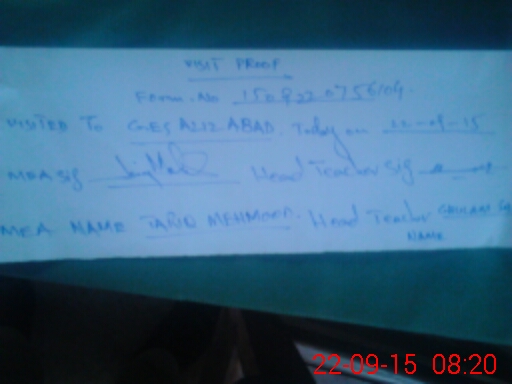 VISIT PROOF
Form.No
VISITED To GES AZIZ ABAD. Today on 22-09-15
MEA Sig Head Teacher Sig
MEA NAME TARIQ MEHMOOD. Head Teacher GHULAM
NAME
22-09-15 08:20